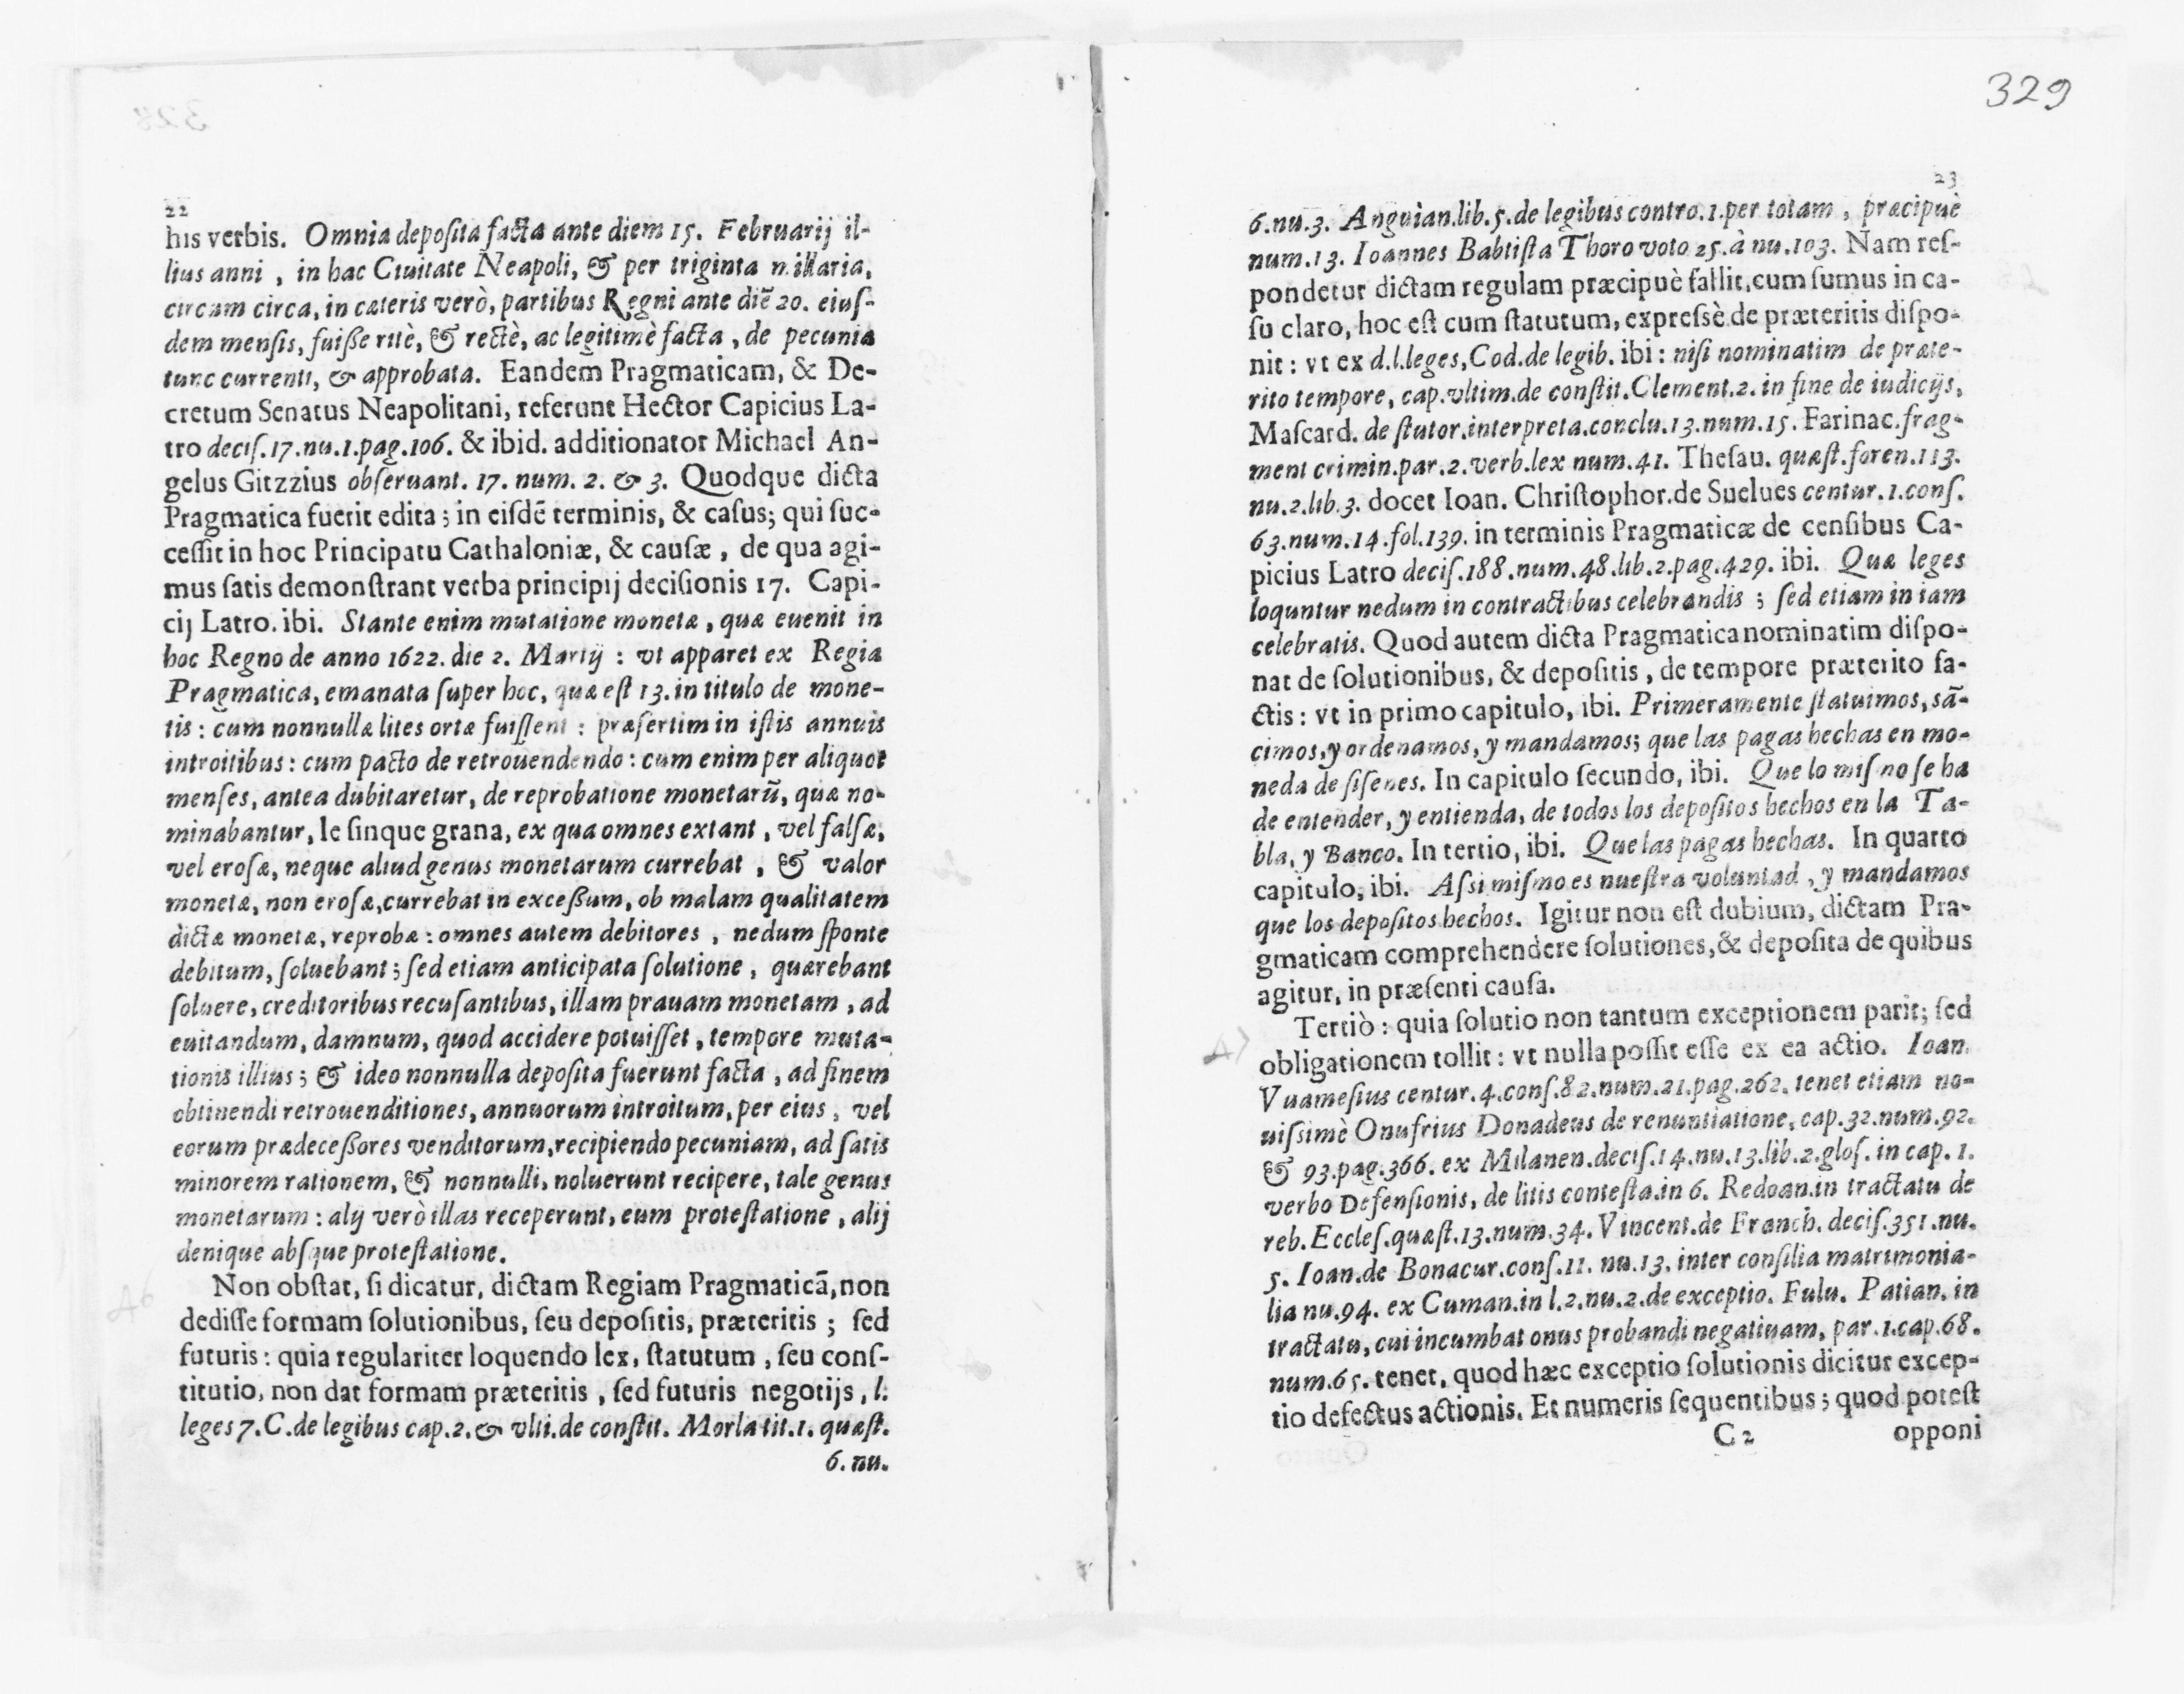 22
his verbis. Omnia deposita facta ante diem 15. Februarij il-
lius anni, in hac Ciuitate Neapoli, & per triginta n.illiaria,
circum circa, in cæteris verò, partibus Regni ante diẽ 20. eius-
dem mensis, fuisse ritè, & rectè, ac legitimè facta, de pecunia
tunc currenti, & approbata. Eandem Pragmaticam, & De-
cretum Senatus Neapolitani, referunt Hector Capicius La-
tro decis.17.nu.1.pag.106. & ibid. additionator Michael An-
gelus Gitzzius obseruant. 17. num. 2. & 3. Quodque dicta
Pragmatica fuerit edita; in eisdẽ terminis, & casus; qui suc-
cessit in hoc Principatu Cathaloniæ, & causæ, de qua agi-
mus satis demonstrant verba principij decisionis 17. Capi-
cij Latro. ibi. Stante enim mutatione monetæ, quæ euenit in
hoc Regno de anno 1622. die 2. Martij : vt apparet ex Regia
Pragmatica, emanata super hoc, quæ est 13. in titulo de mone-
tis : cum nonnullæ lites ortæ fuissent : præsertim in istis annuis
introitibus : cum pacto de retrouendendo : cum enim per aliquot
menses, antea dubitaretur, de reprobatione monetarũ, quæ no-
minabantur, le sinque grana, ex qua omnes extant, vel falsæ,
vel erosæ, neque aliud genus monetarum currebat, & valor
monetæ, non erosæ, currebat in excessum, ob malam qualitatem
dictæ monetæ, reprobæ : omnes autem debitores, nedum sponte
debitum, soluebant; sed etiam anticipata solutione, quærebant
soluere, creditoribus recusantibus, illam prauam monetam, ad
euitandum, damnum, quod accidere potuisset, tempore muta-
tionis illius; & ideo nonnulla deposita fuerunt facta, ad finem
obtinendi retrouenditiones, annuorum introitum, per eius, vel
eorum prædecessores venditorum, recipiendo pecuniam, ad satis
minorem rationem, & nonnulli, noluerunt recipere, tale genus
monetarum : alij verò illas receperunt, cum protestatione, alij
denique absque protestatione.
Non obstat, si dicatur, dictam Regiam Pragmaticã, non
dedisse formam solutionibus, seu depositis, præteritis; sed
futuris : quia regulariter loquendo lex, statutum, seu cons-
titutio, non dat formam præteritis, sed futuris negotijs, l.
leges 7.C.de legibus cap.2.& vlti.de constit. Morla tit.1. quæst.
6. nu.
329
23
6.nu.3. Anguian.lib.5.de legibus contro.1.per totam, præcipuè
num.13. Ioannes Babtista Thoro voto 25.à nu.103. Nam res-
pondetur dictam regulam præcipuè fallit, cum sumus in ca-
su claro, hoc est cum statutum, expressè de præteritis dispo-
nit : vt ex d.l.leges, Cod.de legib. ibi : nisi nominatim de præte-
rito tempore, cap.vltim.de constit.Clement.2. in fine de iudicijs,
Mascard. de stutor.interpreta.conclu.13.num.15. Farinac.frag-
ment crimin.par.2.verb.lex num.41. Thesau. quæst.foren.113.
nu.2.lib.3. docet Ioan. Christophor.de Suelues centur.1.cons.
63.num.14.fol.139. in terminis Pragmaticæ de censibus Ca-
picius Latro decis.188.num.48.lib.2.pag.429. ibi. Quæ leges
loquntur nedum in contractibus celebrandis ; sed etiam in iam
celebratis. Quod autem dicta Pragmatica nominatim dispo-
nat de solutionibus, & depositis, de tempore præterito fa-
ctis : vt in primo capitulo, ibi. Primeramente statuimos, sã-
cimos, y ordenamos, y mandamos; que las pagas hechas en mo-
neda de sisenes. In capitulo secundo, ibi. Que lo mismo se ha
de entender, y entienda, de todos los depositos hechos en la Ta-
bla, y Banco. In tertio, ibi. Que las pagas hechas. In quarto
capitulo, ibi. Assi mismo es nuestra voluntad, y mandamos
que los depositos hechos. Igitur non est dubium, dictam Pra-
gmaticam comprehendere solutiones, & deposita de quibus
agitur, in præsenti causa.
Tertiò : quia solutio non tantum exceptionem parit; sed
obligationem tollit : vt nulla possit esse ex ea actio. Ioan.
Vuamesius centur.4.cons.82.num.21.pag.262. tenet etiam no-
uissimè Onufrius Donadeus de renuntiatione, cap.32.num.92.
& 93.pag.366. ex Milanen.decis.14.nu.13.lib.2.glos. in cap. 1.
verbo Defensionis, de litis contesta.in 6. Redoan.in tractatu de
reb. Eccles.quæst.13.num.34. Vincent.de Franch. decis.351.nu.
5. Ioan.de Bonacur.cons.11. nu.13. inter consilia matrimonia-
lia nu.94. ex Cuman.in l.2.nu.2.de exceptio. Fulu. Patian. in
tractatu, cui incumbat onus probandi negatiuam, par.1.cap.68.
num.65. tenet, quod hæc exceptio solutionis dicitur excep-
tio defectus actionis. Et numeris sequentibus; quod potest
C 2 opponi